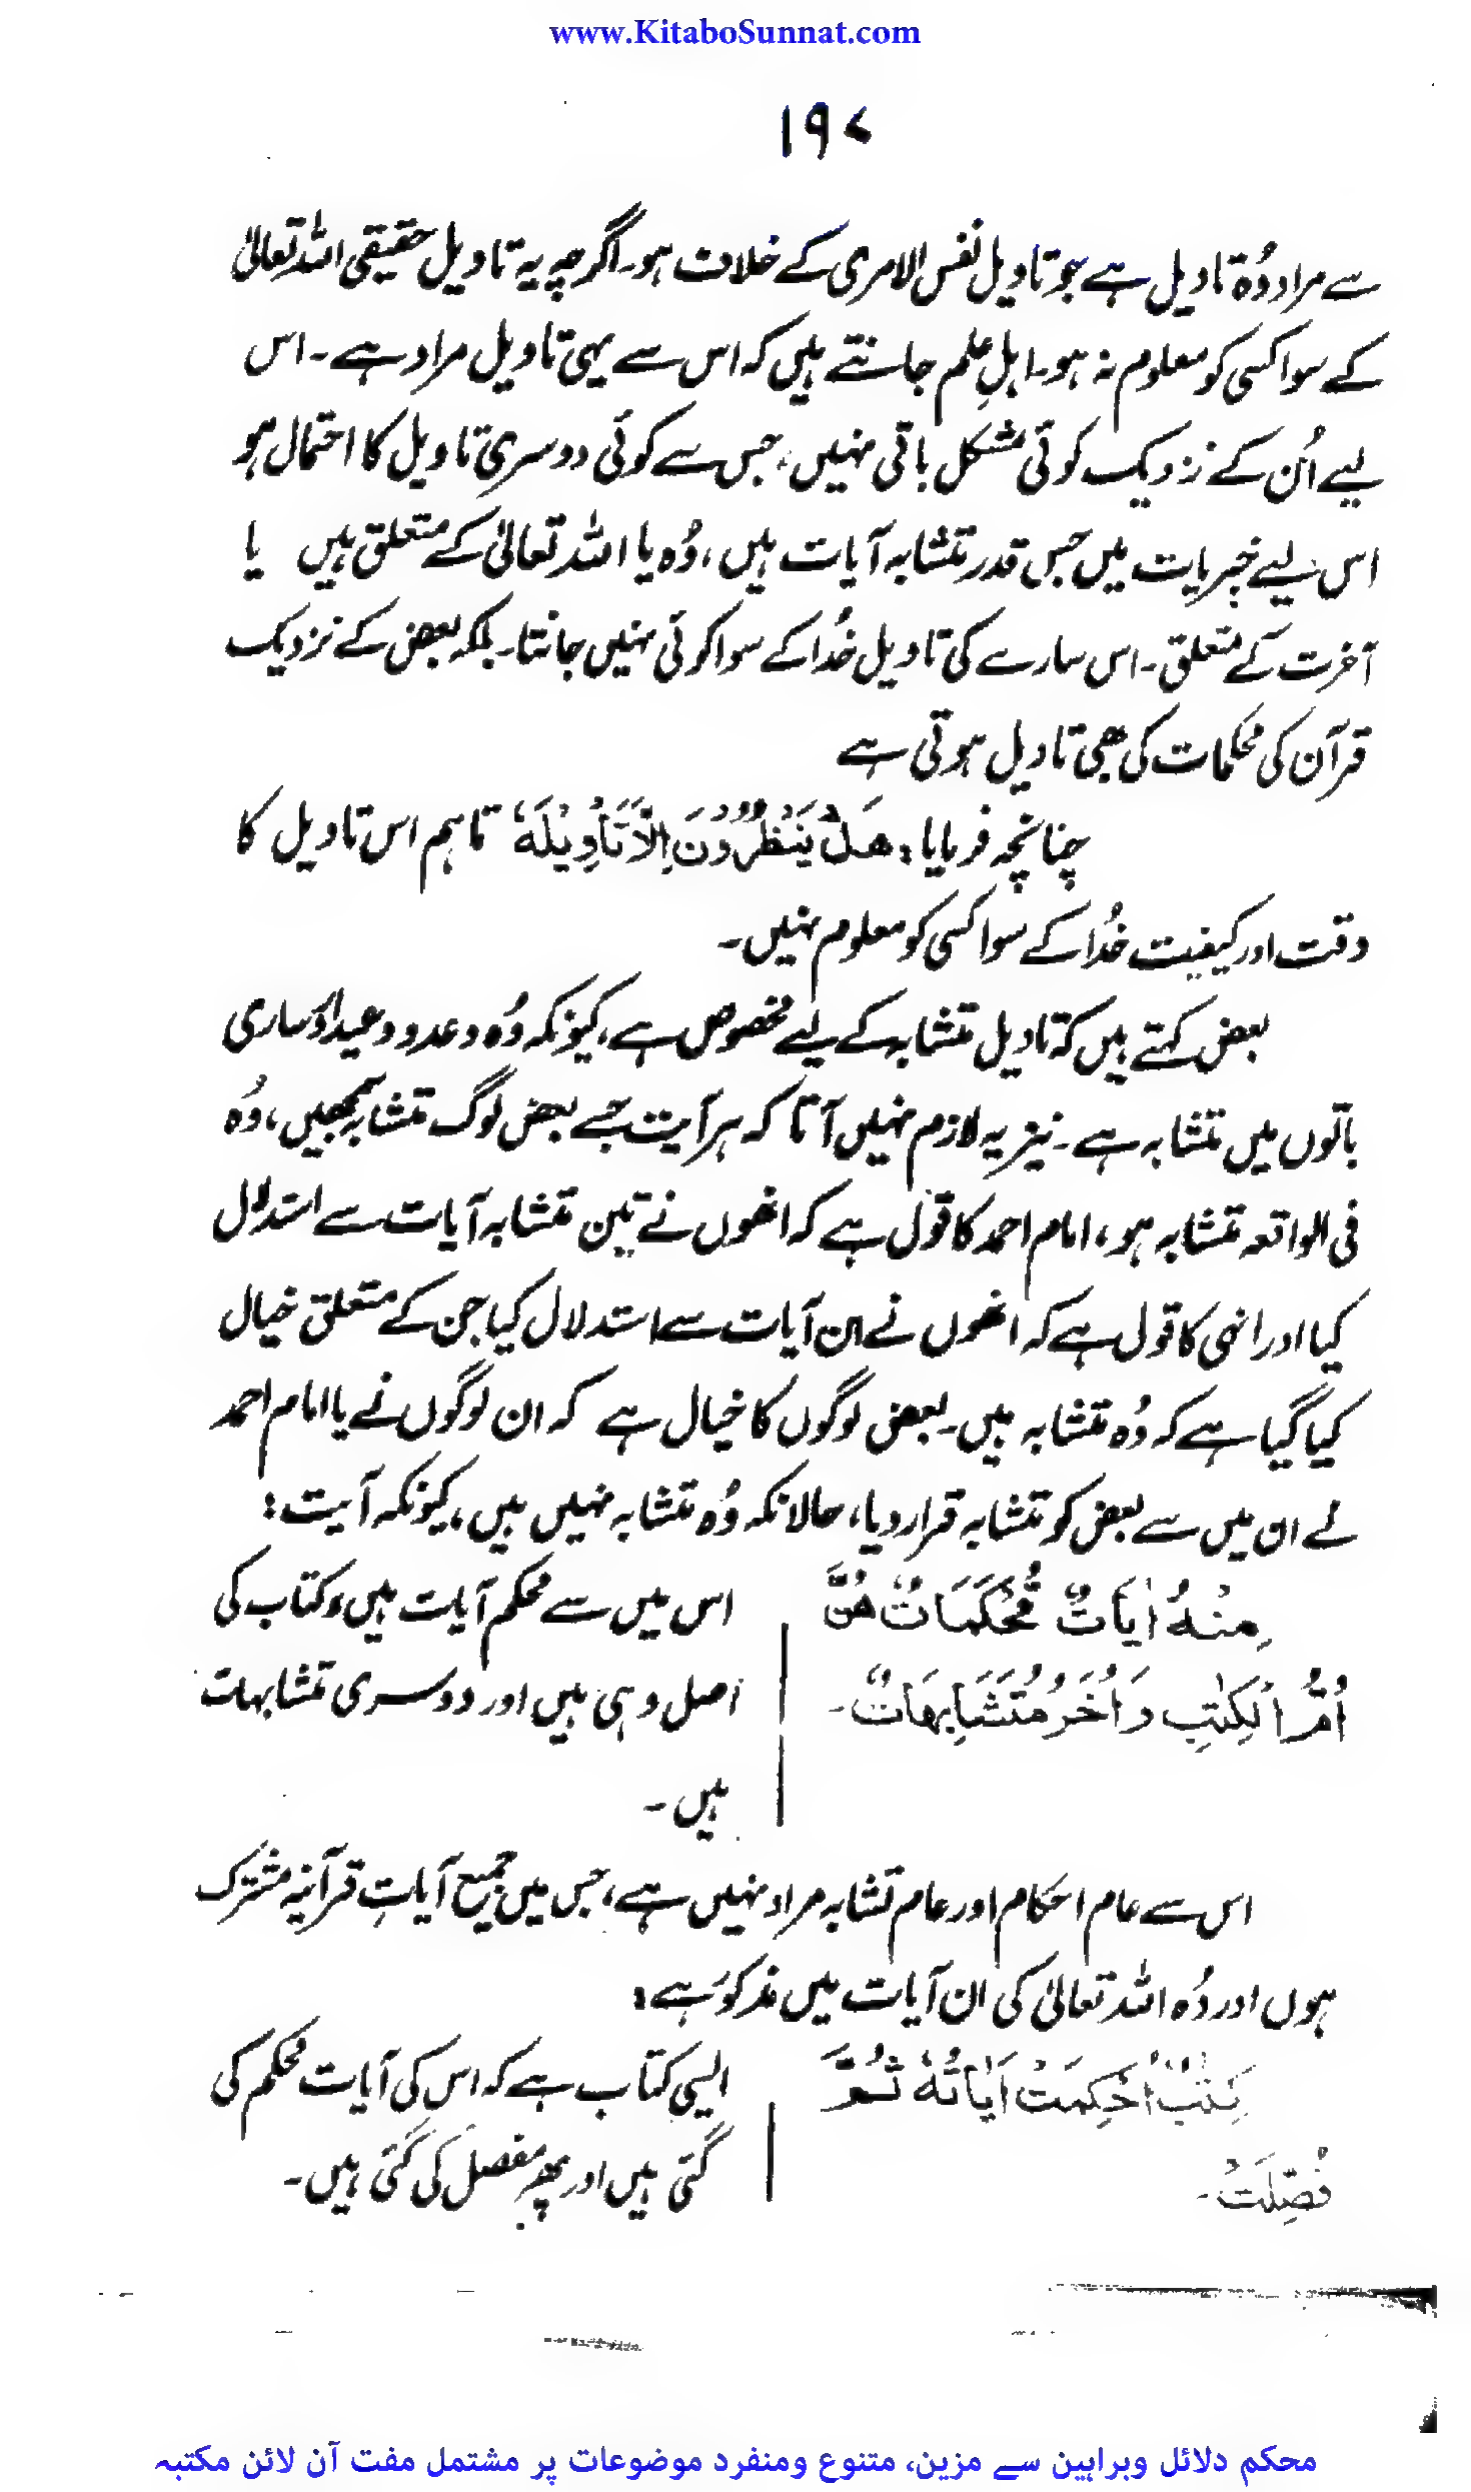 www.KitaboSunnat.com
۱۹۷
سے مراد وُہ تاویل ہے جو تاویل نفس الامری کے خلاف ہو۔ اگرچہ یہ تاویل حقیقی اللہ تعالیٰ
کے سوا کسی کو معلوم نہ ہو۔ اہلِ علم جانتے ہیں کہ اس سے یہی تاویل مراد ہے۔ اس
لیے اُن کے نزدیک کوئی مشکل باقی نہیں، جس سے کوئی دوسری تاویل کا احتمال ہو
اس لیے خبریات میں جس قدر متشابہ آیات ہیں، وُہ یا اللہ تعالیٰ کے متعلق ہیں یا
آخرت کے متعلق۔ اس سارے کی تاویل خُدا کے سوا کوئی نہیں جانتا۔ بلکہ بعض کے نزدیک
قرآن کی محکمات کی بھی تاویل ہوتی ہے
چنانچہ فرمایا: هَلْ يَنْظُرُوْنَ اِلَّا تَأْوِيْلَهٗ تاہم اس تاویل کا
وقت اور کیفیت خُدا کے سوا کسی کو معلوم نہیں۔
بعض کہتے ہیں کہ تاویل متشابہ کے لیے مخصوص ہے، کیونکہ وُہ وعدہ و وعید اور ساری
باتوں میں متشابہ ہے۔ نیز یہ لازم نہیں آتا کہ ہر آیت جسے بعض لوگ متشابہ سمجھیں، وُہ
فی الواقعہ متشابہ ہو، امام احمد کا قول ہے کہ انھوں نے تین متشابہ آیات سے استدلال
کیا اور انہی کا قول ہے کہ انھوں نے ان آیات سے استدلال کیا جن کے متعلق خیال
کیا گیا ہے کہ وُہ متشابہ ہیں۔ بعض لوگوں کا خیال ہے کہ ان لوگوں نے یا امام احمد
نے ان میں سے بعض کو متشابہ قرار دیا، حالانکہ وُہ متشابہ نہیں ہیں، کیونکہ آیت:
مِنْهُ اٰيَاتٌ مُّحْكَمَاتٌ هُنَّ اس میں سے محکم آیات ہیں، کتاب کی
اُمُّ الْكِتٰبِ وَاُخَرُ مُتَشَابِهَاتٌ۔ اصل وہی ہیں اور دوسری متشابہات
ہیں۔
اس سے عام احکام اور عام تشابہ مراد نہیں ہے، جس میں جمیع آیاتِ قرآنیہ مشترک
ہوں اور وُہ اللہ تعالیٰ کی ان آیات میں مذکور ہے:
كِتٰبٌ اُحْكِمَتْ اٰيَاتُهٗ ثُمَّ ایسی کتاب ہے کہ اس کی آیات محکم کی
فُصِّلَتْ۔ گئی ہیں اور پھر مفصل کی گئی ہیں۔
محکم دلائل وبراہین سے مزین، متنوع ومنفرد موضوعات پر مشتمل مفت آن لائن مکتبہ